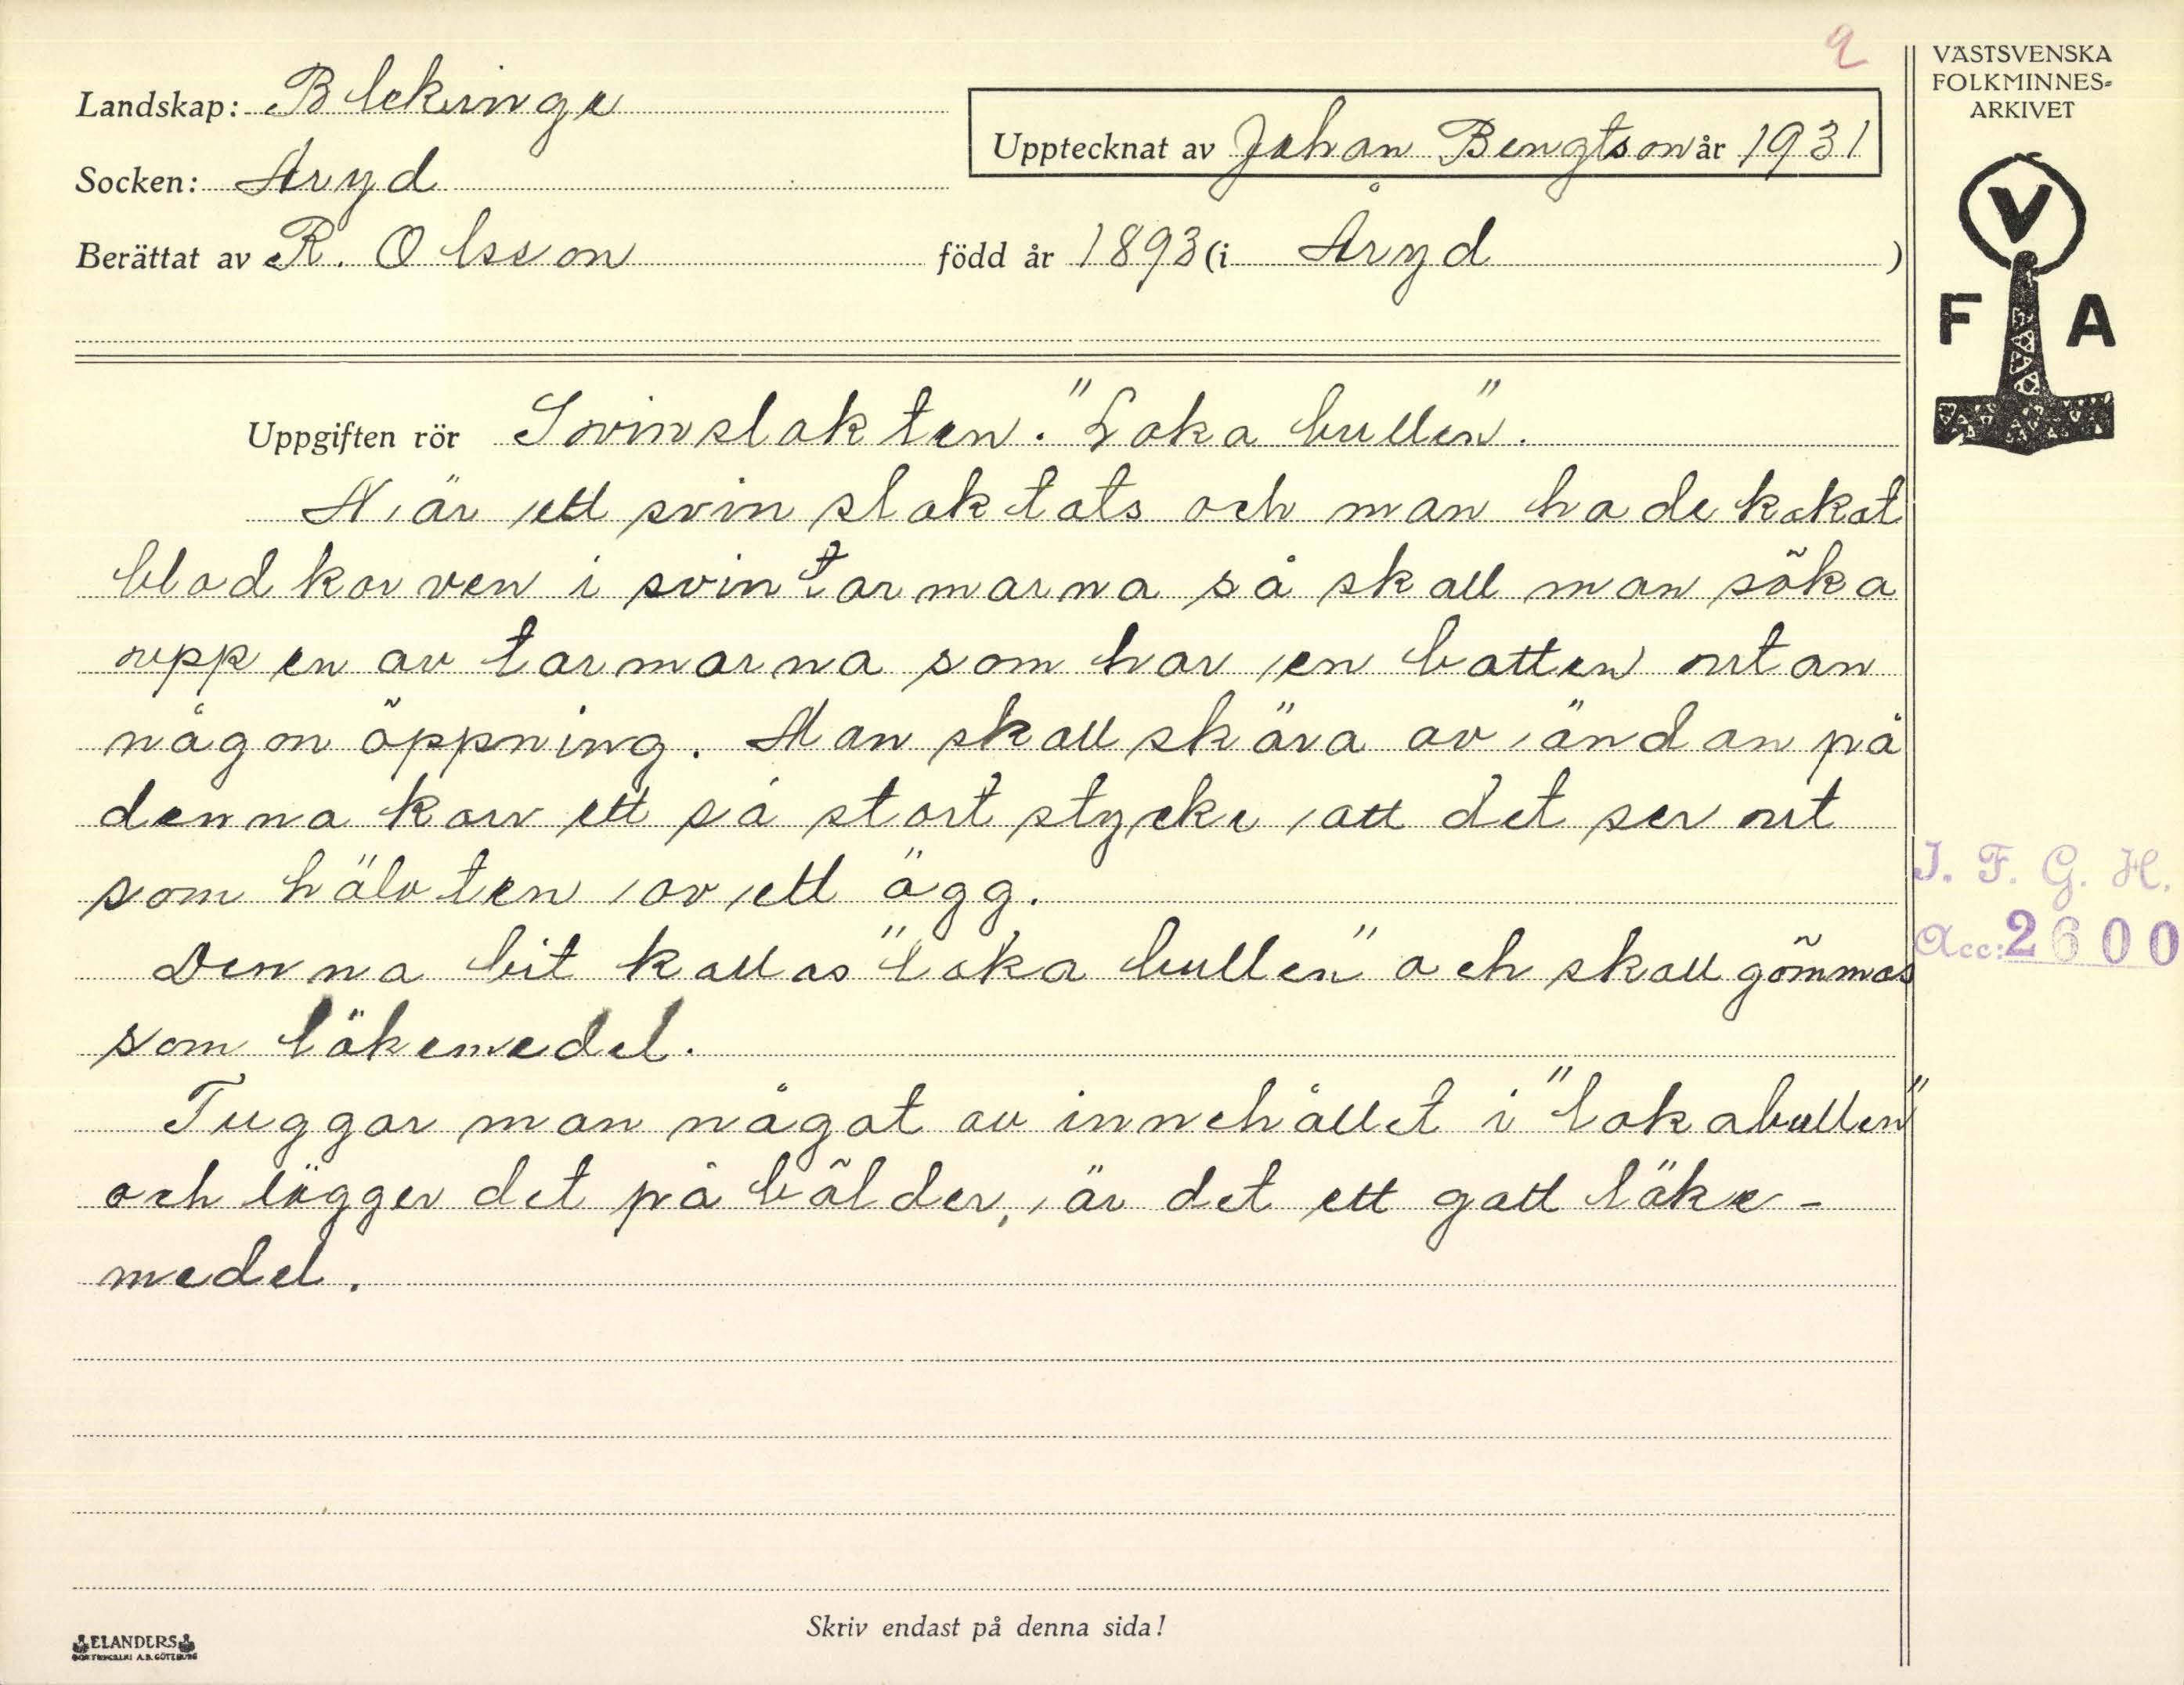 9
Landskap: Blekinge
Socken: Åryd
Berättat av R. Olsson född år 1893 (i Åryd )
Upptecknat av Johan Bengtson år 1931
VÄSTSVENSKA
FOLKMINNES-
ARKIVET
V
F A
Uppgiften rör Svinslakten. "Loka bullen".
När ett svin slaktats och man hade kokat
blodkorven i svintarmarna så skall man söka
upp en av tarmarna som har en botten utan
någon öppning. Man skall skära av ändan på
denna korv ett så stort stycke att det ser ut
som hälvten av ett ägg.
Denna bit kallas "loka bullen" och skall gömmas
som läkemedel.
Tuggar man något av innehållet i "lokabullen"
och lägger det på bölder, är det ett gott läke-
medel.
I. F. G. H.
Acc: 2600
Skriv endast på denna sida!
ELANDERS
BOKTRYCKERI A.B. GÖTEBORG